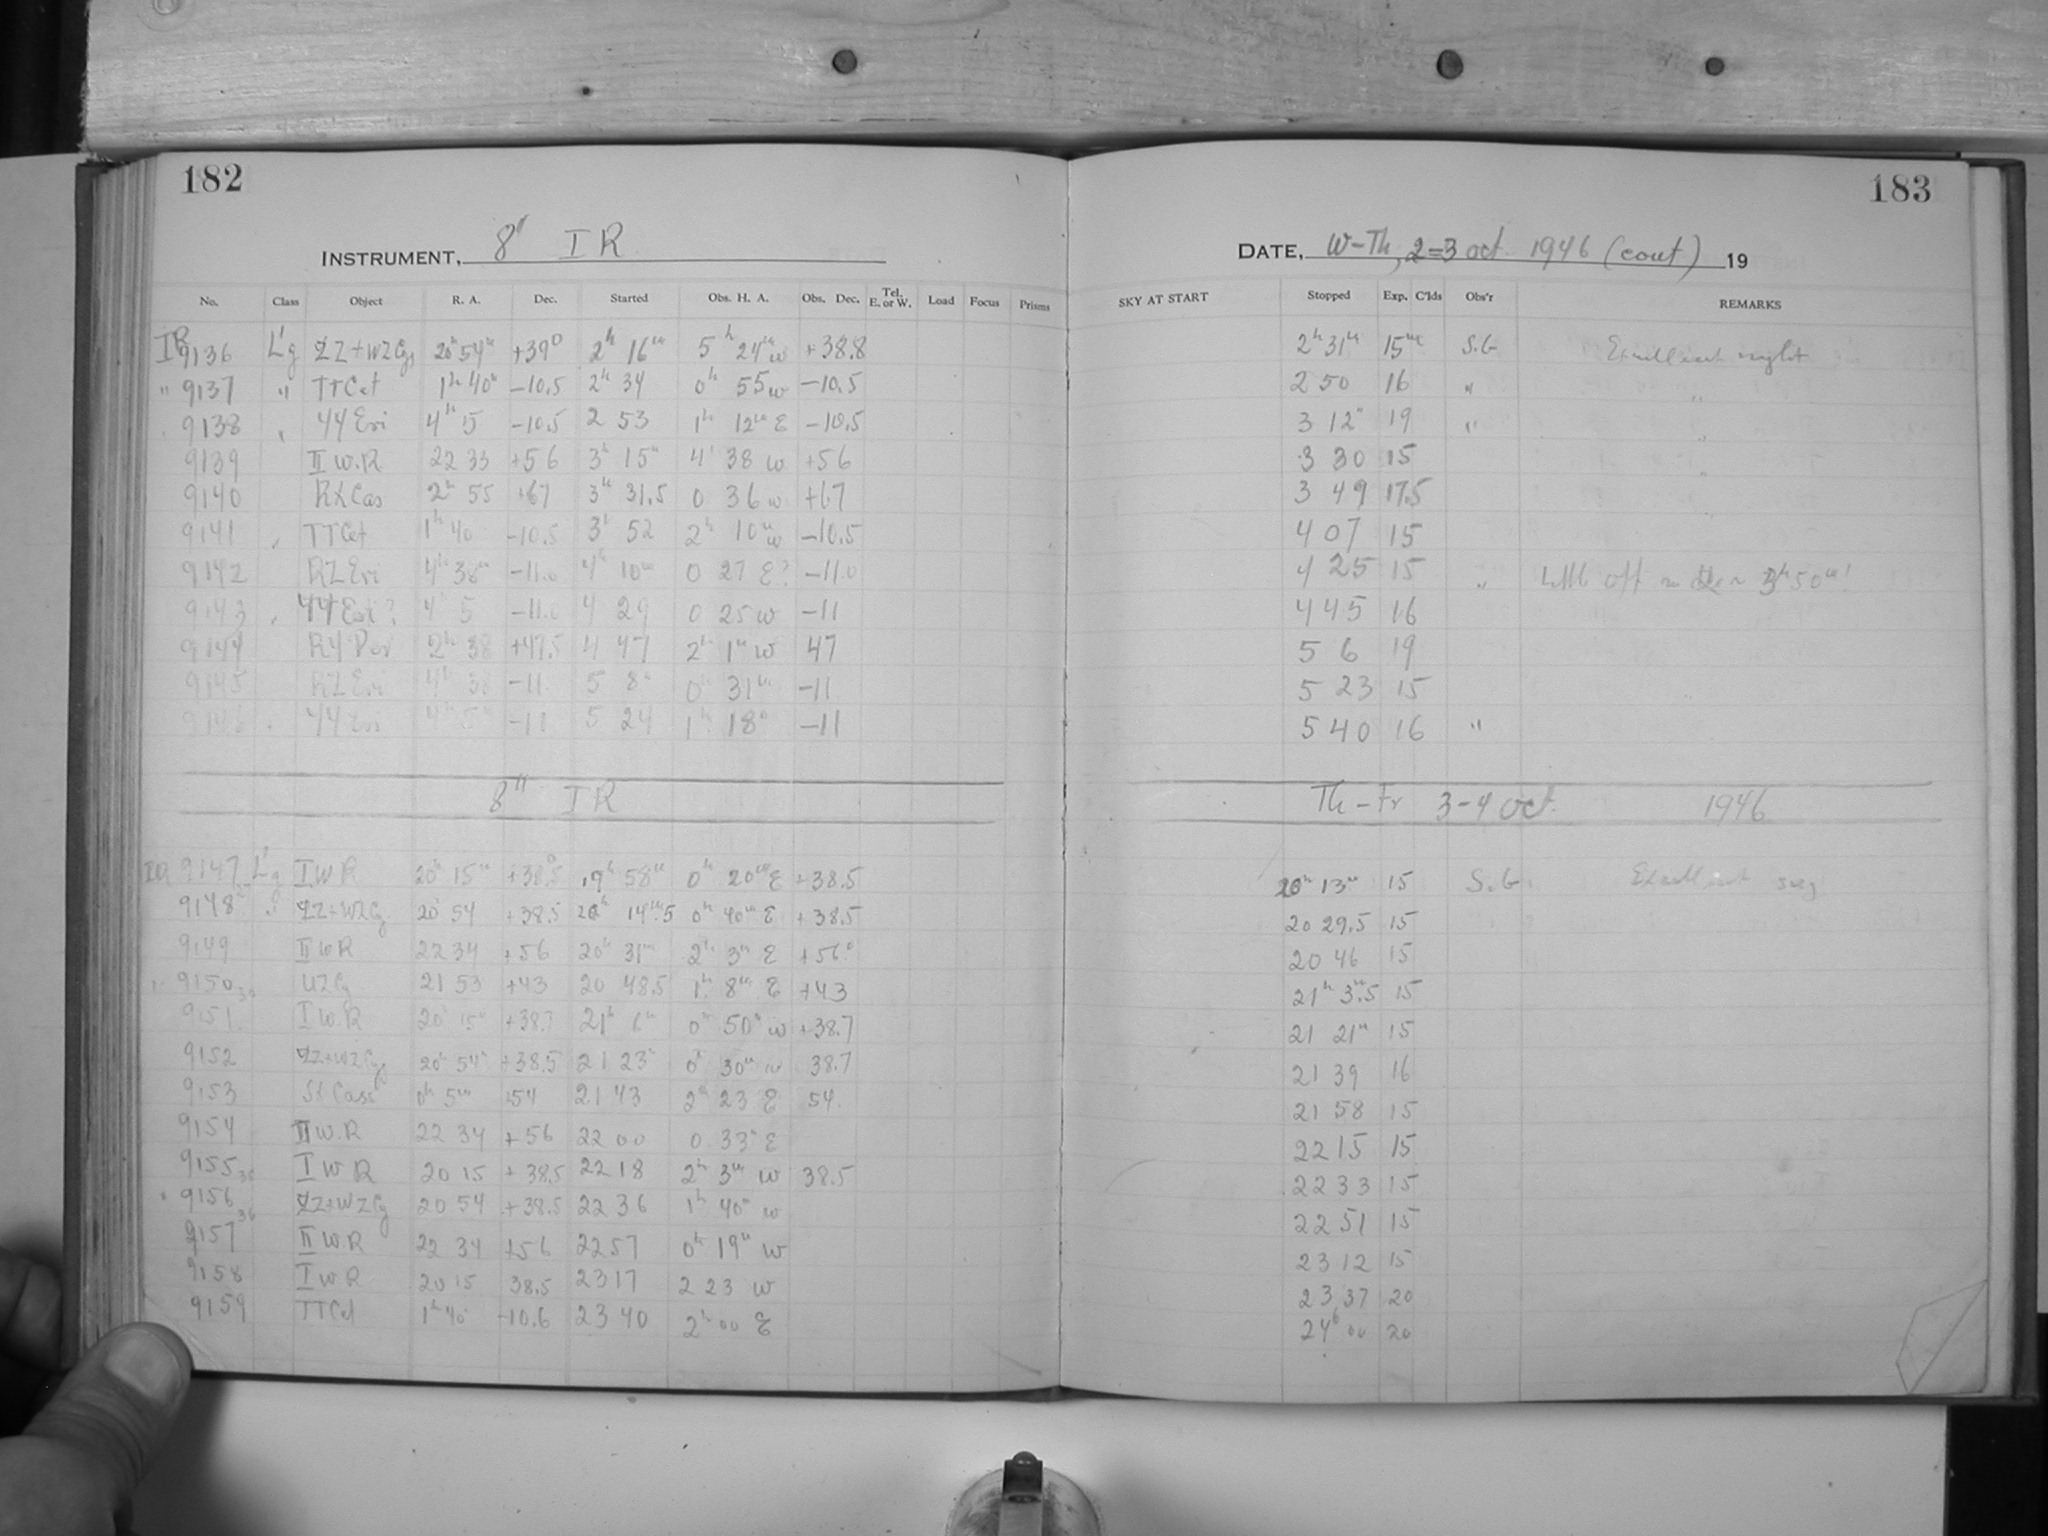 182
183
INSTRUMENT, 8" IR
DATE, W-Th, 2=3 oct 1946 (cont) 19
No. Class Object R. A. Dec. Started Obs. H. A. Obs. Dec. Tel. E. or W. Load Focus Prisms SKY AT START Stopped Exp. C'lds Obs'r REMARKS
IR 9136 Lg ZZ+WZCyg 20h 54m +39° 2h 16m 5h 24m w +38.8 2h 31m 15m S.G Excellent night
" 9137 " TTCet 1h 40m -10.5 2 34 0h 55 w -10.5 2 50 16 " "
9138 " YYEri 4h 5 -10.5 2 53 1h 12m E -10.5 3 12 19 " "
9139 II W.R 22 33 +56 3h 15m 4h 38 w +56 3 30 15 "
9140 RZCas 2h 55 +67 3h 31.5 0 36 w +67 3 49 17.5
9141 TTCet 1h 40 -10.5 3h 52 2h 10m w -10.5 4 07 15
9142 RZEri 4h 38m -11.0 4h 10m 0 27 E? -11.0 4 25 15 " little off in 3h50m!
9143 4 5 -11.0 4 29 0 25 w -11 4 45 16
9144 RYPer 2h 38 +47.5 4 47 2h 1m w 47 5 6 19
9145 RZEri 4h 38 -11 5 8 0h 31m -11 5 23 15
9146 YYEri 4h 5m -11 5 24 1h 18 -11 5 40 16 "
8" IR Th-Fr 3-4 Oct. 1946
IR 9147 Lg I W R 20h 15m +38.5 19h 58m 0h 20m E +38.5 20h 13m 15 S.G. Excellent
9148 ZZ+WZCy 20 54 +38.5 20h 14m.5 0h 40m E +38.5 20 29.5 15
9149 II W R 22 34 +56 20h 31m 2h 3m E +56° 20 46 15
" 9150 UZCy 21 53 +43 20 48.5 1h 8m E +43 21h 3m.5 15
9151 I W.R 20 15m +38.7 21h 6m 0h 50m w +38.7 21 21m 15
9152 ZZ+WZCy 20h 54m +38.5 21 23 0h 30m w 38.7 21 39 16
9153 0h 5m +54 21 43 2h 23 E 54. 21 58 15
9154 II W.R 22 34 +56 22 00 0 33m E 22 15 15
9155 I W R 20 15 +38.5 22 18 2h 3m w 38.5 22 33 15
9156 ZZ+WZCy 20 54 +38.5 22 36 1h 40m w 22 51 15
9157 II W.R 22 34 +56 22 57 0h 19m w 23 12 15
9158 I W R 20 15 38.5 23 17 2 23 w 23 37 20
9159 TTCet 1h 40 -10.6 23 40 2h 00 E 24h 00 20